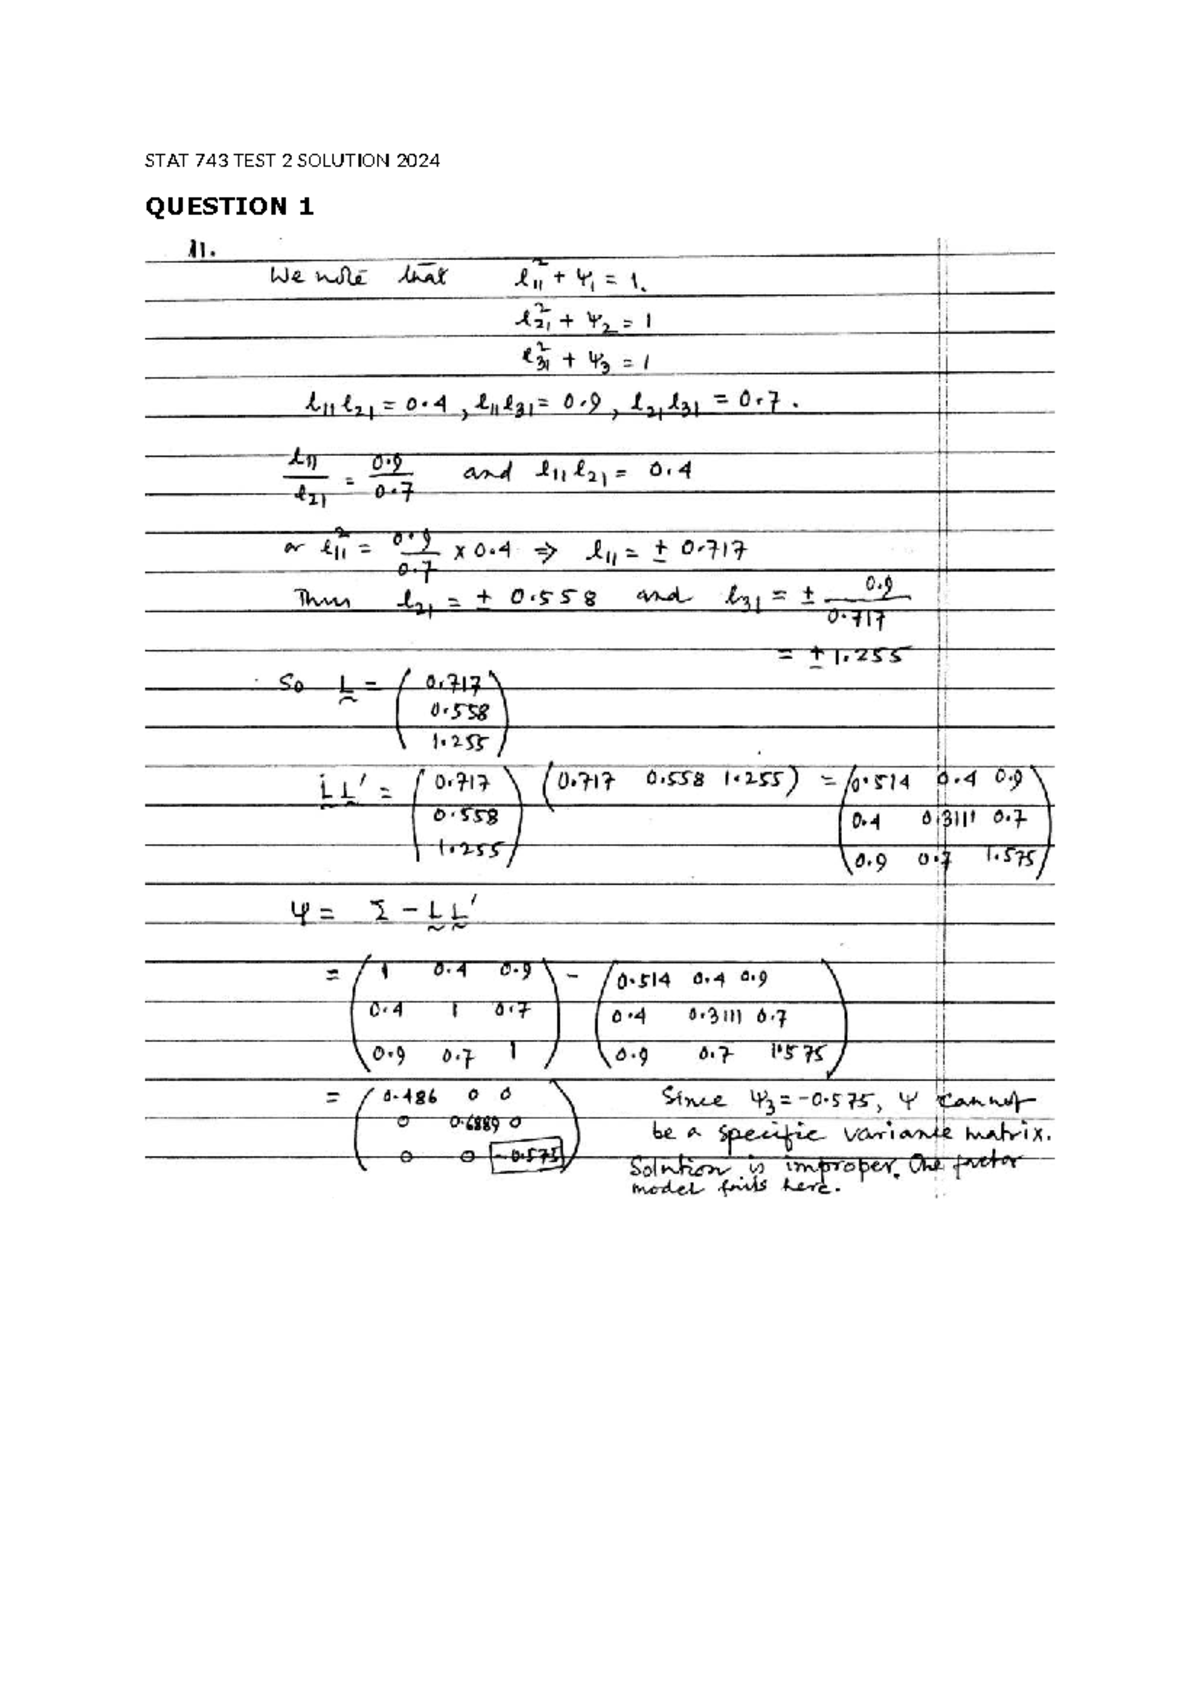 STAT 743 TEST 2 SOLUTION 2024
QUESTION 1
11.
We note that l₁₁² + ψ₁ = 1.
l₂₁² + ψ₂ = 1
l₃₁² + ψ₃ = 1
l₁₁l₂₁ = 0.4, l₁₁l₃₁ = 0.9, l₂₁l₃₁ = 0.7.
l₁₁/l₂₁ = 0.9/0.7 and l₁₁l₂₁ = 0.4
or l₁₁² = 0.9/0.7 x 0.4 ⇒ l₁₁ = ± 0.717
Thus l₂₁ = ± 0.558 and l₃₁ = ± 0.9/0.717
= ± 1.255
So L = ( 0.717
0.558
1.255 )
L L' = ( 0.717 ) (0.717 0.558 1.255) = ( 0.514 0.4 0.9
0.558 0.4 0.3111 0.7
1.255 0.9 0.7 1.575 )
ψ = Σ - L L'
= ( 1 0.4 0.9 ) - ( 0.514 0.4 0.9 )
0.4 1 0.7 0.4 0.3111 0.7
0.9 0.7 1 0.9 0.7 1.575
= ( 0.486 0 0 Since ψ₃ = -0.575, ψ cannot
0 0.6889 0 be a specific variance matrix.
0 0 -0.575 ) Solution is improper. One factor
model fails here.